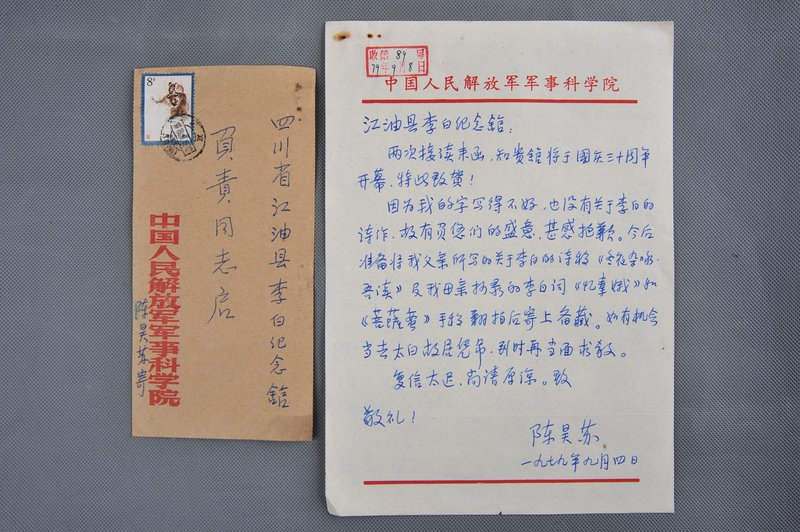 8分
四川省江油县李白纪念舘
負責同志启
中国人民解放军军事科学院
陈昊苏寄
收第89号
79年9月8日
中国人民解放军军事科学院
江油县李白纪念舘:
两次接读来函,知贵舘将于國庆三十周年
开幕,特此致贺!
因为我的字写得不好,也没有关于李白的
诗作,故有负您们的盛意,甚感抱歉。今后
准备将我父亲所写的关于李白的诗稿《冬夜杂咏·
吾读》及我母亲抄录的李白词《忆秦娥》和
《菩萨蛮》手稿翻拍后寄上备藏。如有机会
当去太白故居凭吊,到时再当面求教。
复信太迟,尚请原谅。致
敬礼!
陈昊苏
一九七九年九月四日